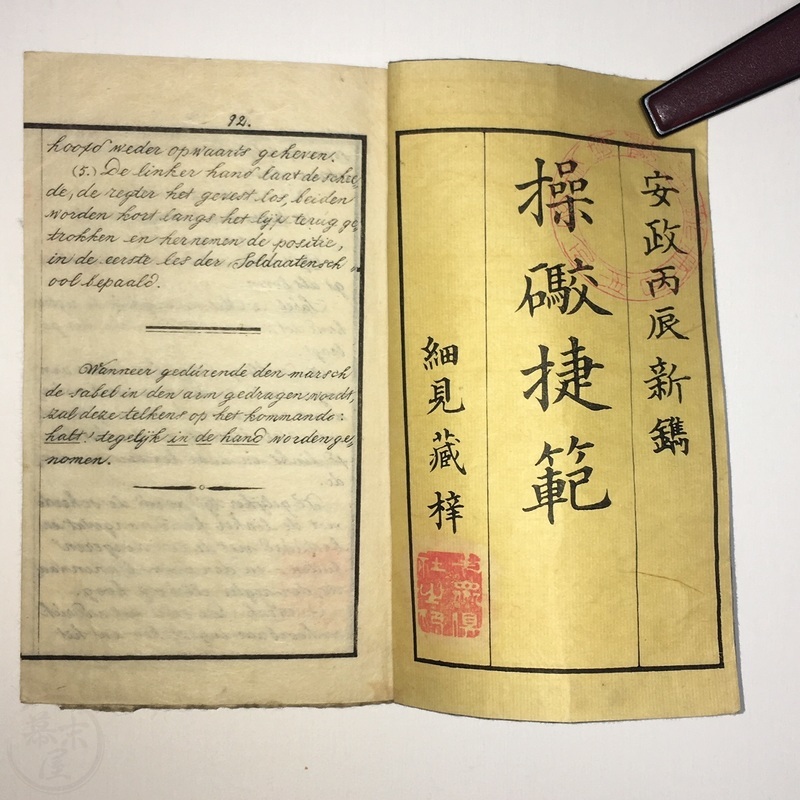 92.
hoofd weder opwaarts geheven.
(5.) De linker hand laat de schee
de, de regter het gevest los, beiden
worden kort langs het lijf terug ge,
trokken en hernemen de positie,
in de eerste les der Soldaatensch
ool bepaald.
Wanneer gedürende den marsch
de sabel in den arm gedragen wordt,
zal deze telkens op het kommando:
halt! tegelyk in de hand worden ge,
nomen.
安政丙辰新鐫
操礮捷範
細見藏梓
幕末屋